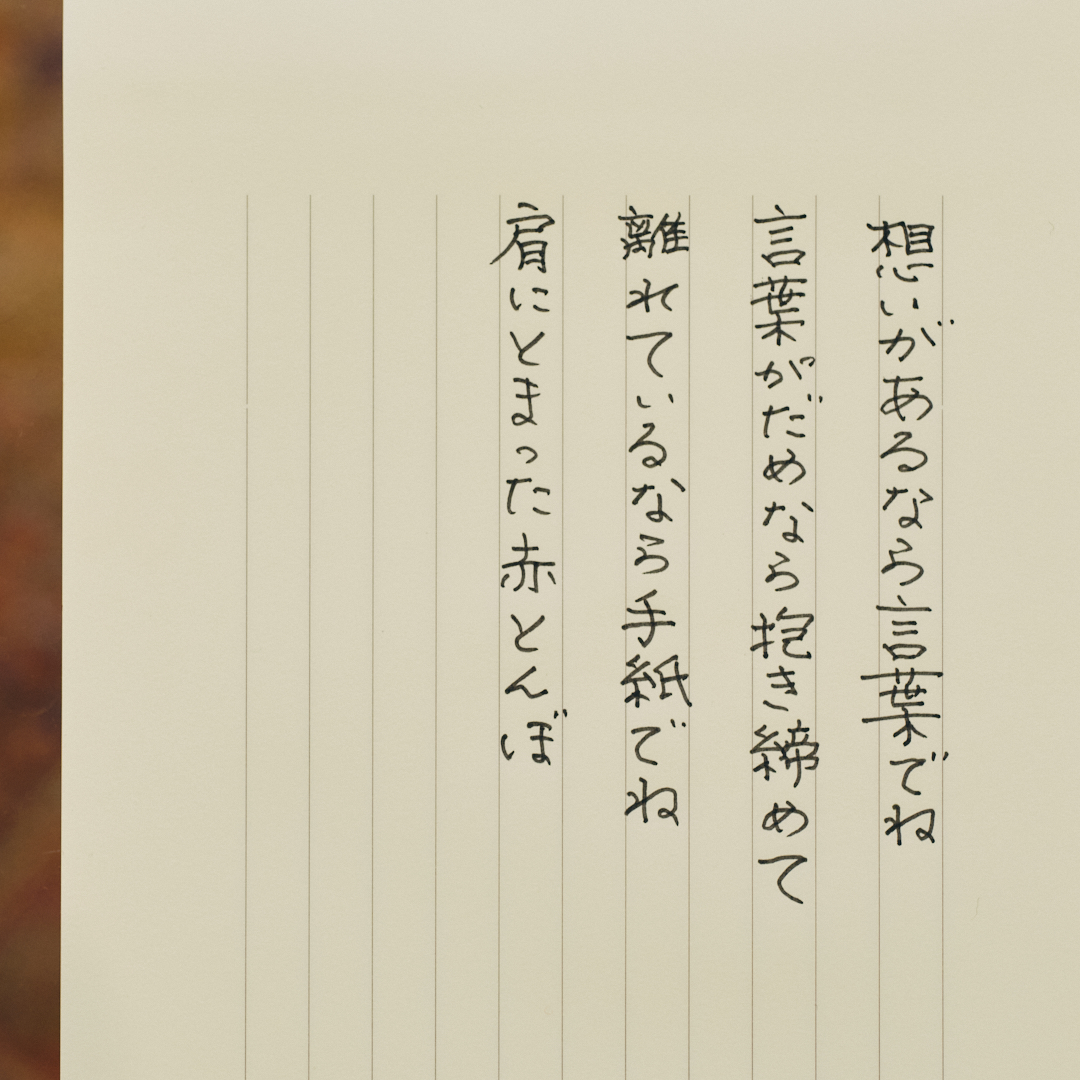 想いがあるなら言葉でね
言葉がだめなら抱き締めて
離れているなら手紙でね
肩にとまった赤とんぼ